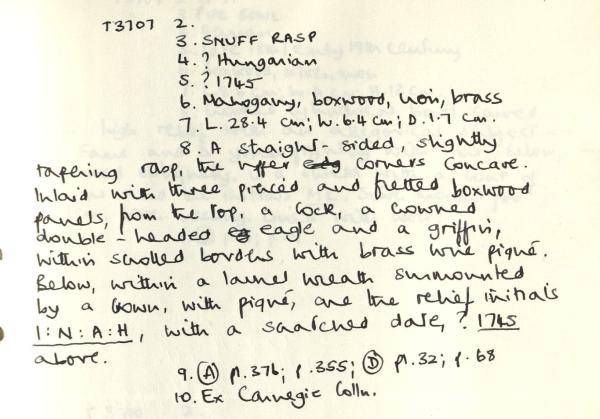 T3707 2.
3. SNUFF RASP
4. ? Hungarian
5. ? 1745
6. Mahogany, boxwood, iron, brass
7. L. 28.4 cm; W. 6.4 cm; D. 1.7 cm.
8. A straight-sided, slightly
tapering rasp, the upper corners concave.
Inlaid with three pierced and fretted boxwood
panels, from the top, a cock, a crowned
double-headed eagle and a griffin,
within scrolled borders with brass wire piqué.
Below, within a laurel wreath surmounted
by a crown, with piqué, are the relief initials
I:N:A:H, with a scratched date, ? 1745
above.
9. (A) pl. 376; p. 355; (D) pl. 32; p. 68
10. Ex Carnegie Colln.